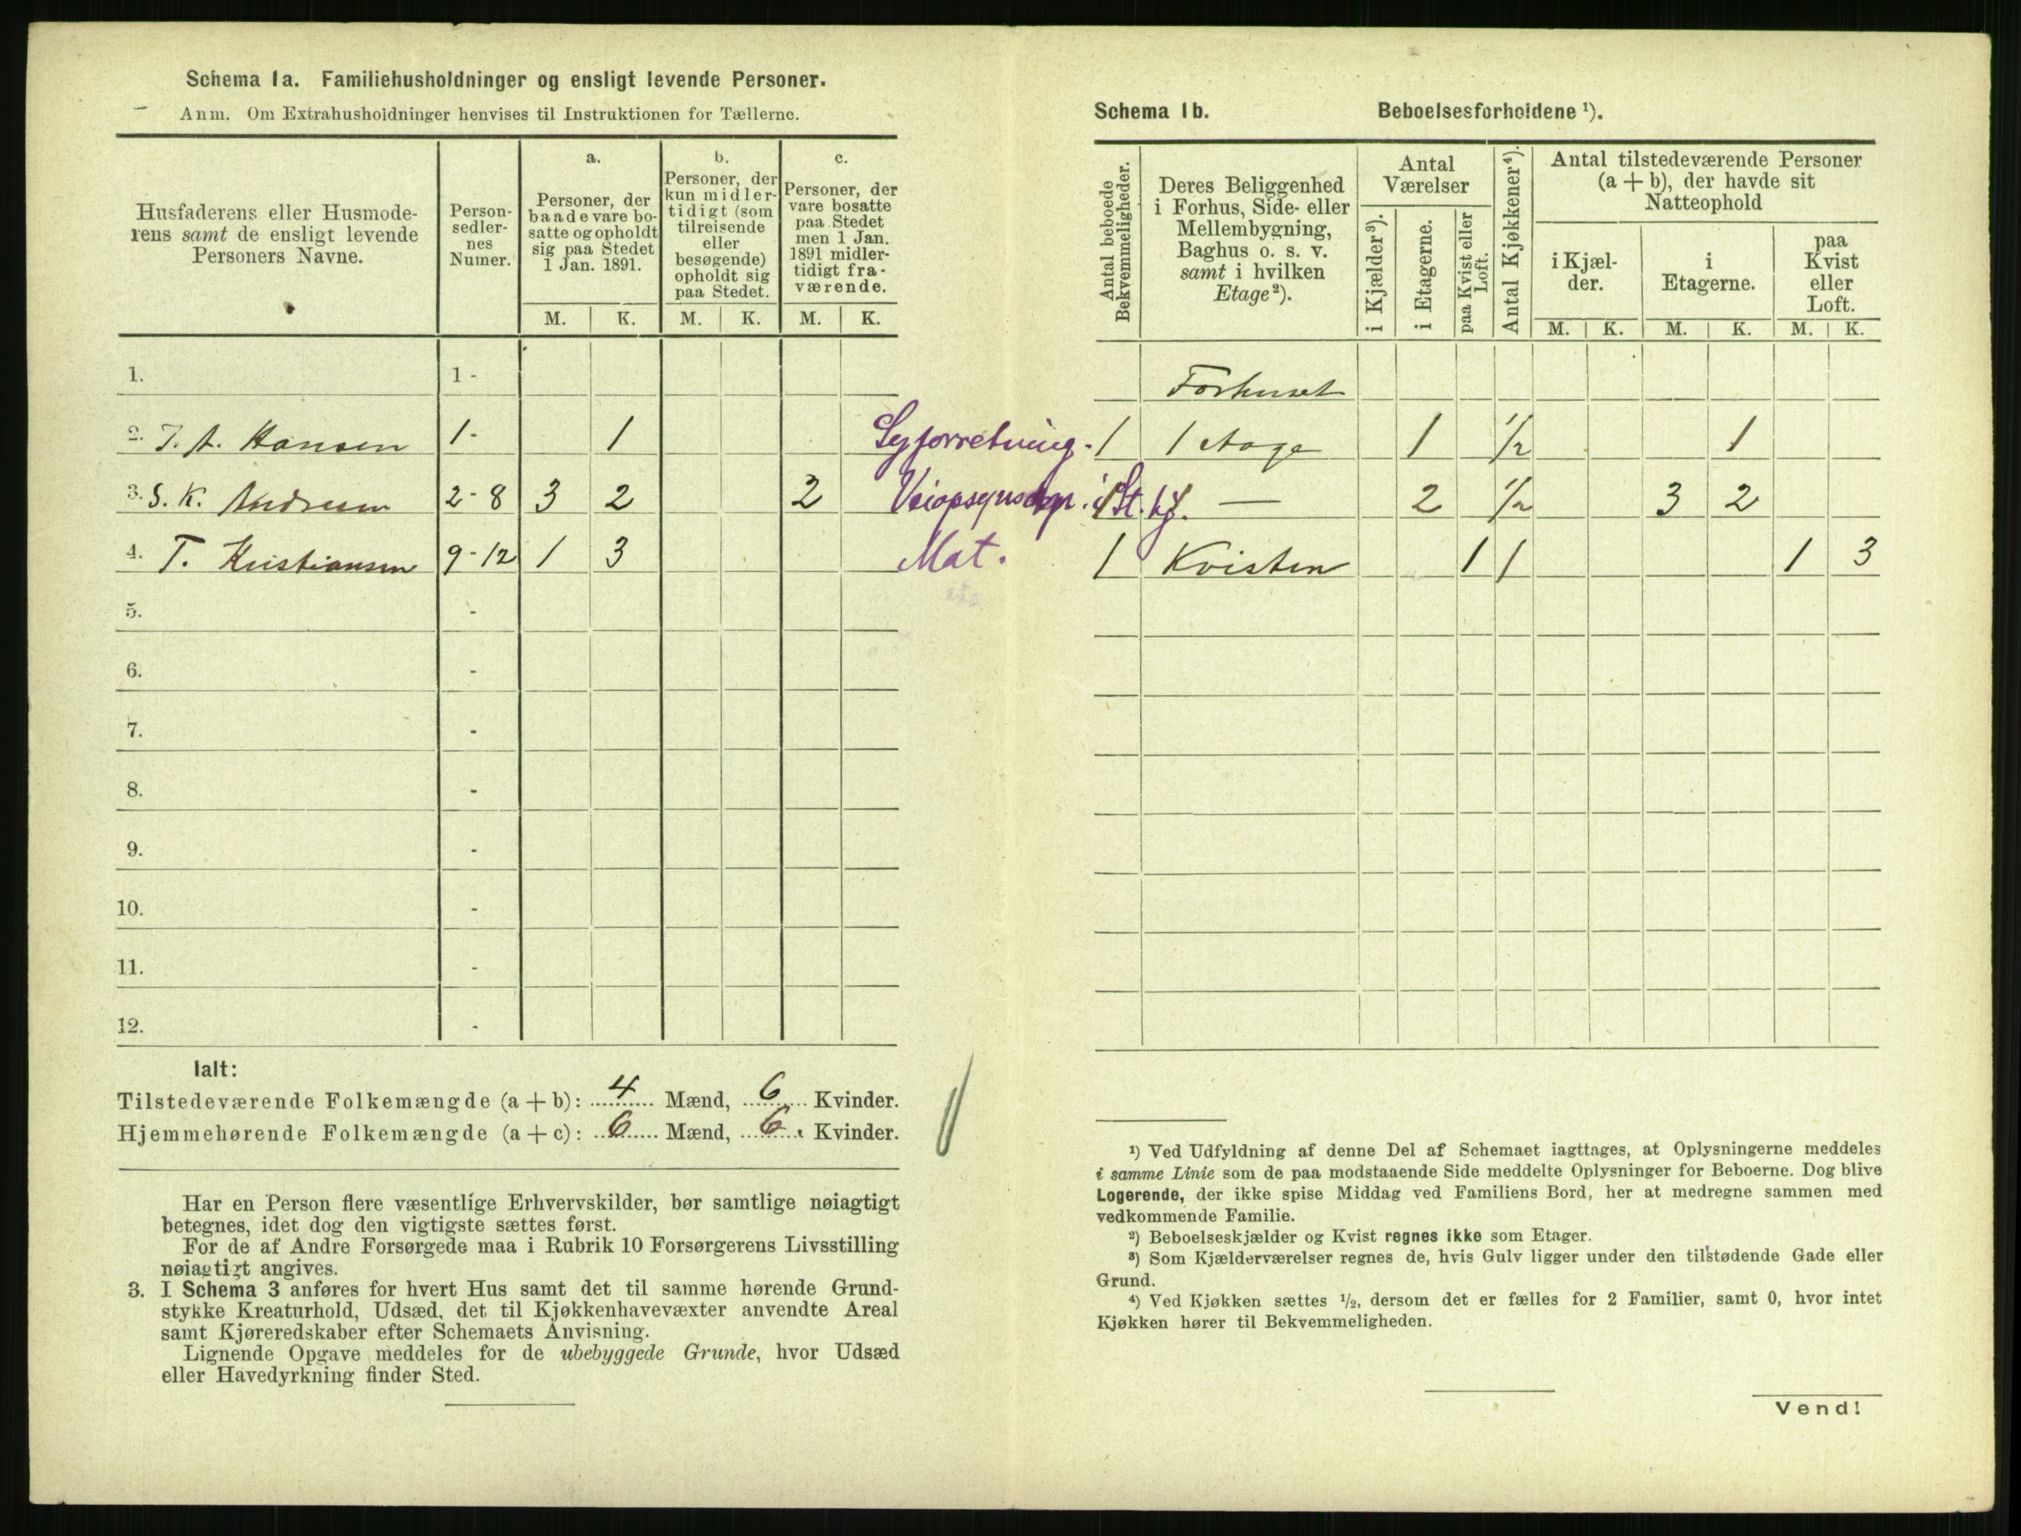 Schema 1a. Familiehusholdninger og ensligt levende Personer.
Anm. Om Extrahusholdninger henvises til Instruktionen for Tællerne.
Husfaderens eller Husmode-
rens samt de ensligt levende
Personers Navne.
Person-
sedler-
nes
Numer.
a.
Personer, der
baade vare bo-
satte og opholdt
sig paa Stedet
1 Jan. 1891.
b.
Personer, der
kun midler-
tidigt (som
tilreisende
eller
besøgende)
opholdt sig
paa Stedet.
c.
Personer, der
vare bosatte
paa Stedet
men 1 Jan.
1891 midler-
tidigt fra-
værende.
M. K. M. K. M. K.
1. 1 -
2. J. A. Hansen 1- 1 Syforretning.
3. S. K. Andresen 2-8 3 2 2 Veiopsynsdep. i St. kj.
4. T. Kristiansen 9-12 1 3 Mat.
5. -
6. -
7. -
8. -
9. -
10. -
11. -
12. -
Ialt:
Tilstedeværende Folkemængde (a + b): 4 Mænd, 6 Kvinder.
Hjemmehørende Folkemængde (a + c): 6 Mænd, 6 Kvinder.
Har en Person flere væsentlige Erhvervskilder, bør samtlige nøiagtigt
betegnes, idet dog den vigtigste sættes først.
For de af Andre Forsørgede maa i Rubrik 10 Forsørgerens Livsstilling
nøiagtigt angives.
3. I Schema 3 anføres for hvert Hus samt det til samme hørende Grund-
stykke Kreaturhold, Udsæd, det til Kjøkkenhavevæxter anvendte Areal
samt Kjøreredskaber efter Schemaets Anvisning.
Lignende Opgave meddeles for de ubebyggede Grunde, hvor Udsæd
eller Havedyrkning finder Sted.
Schema 1b. Beboelsesforholdene ¹).
Antal beboede
Bekvemmeligheder.
Deres Beliggenhed
i Forhus, Side- eller
Mellembygning,
Baghus o. s. v.
samt i hvilken
Etage²).
Antal
Værelser
i Kjælder³).
i Etagerne.
paa Kvist eller
Loft.
Antal Kjøkkener⁴).
Antal tilstedeværende Personer
(a + b), der havde sit
Natteophold
i Kjæl-
der.
i
Etagerne.
paa
Kvist
eller
Loft.
M. K. M. K. M. K.
Forhuset
1 1 Etage 1 ½ 1
1 1 — 2 ½ 3 2
1 Kvisten 1 1 1 3
¹) Ved Udfyldning af denne Del af Schemaet iagttages, at Oplysningerne meddeles
i samme Linie som de paa modstaaende Side meddelte Oplysninger for Beboerne. Dog blive
Logerende, der ikke spise Middag ved Familiens Bord, her at medregne sammen med
vedkommende Familie.
²) Beboelseskjælder og Kvist regnes ikke som Etager.
³) Som Kjælderværelser regnes de, hvis Gulv ligger under den tilstødende Gade eller
Grund.
⁴) Ved Kjøkken sættes ½, dersom det er fælles for 2 Familier, samt 0, hvor intet
Kjøkken hører til Bekvemmeligheden.
Vend!